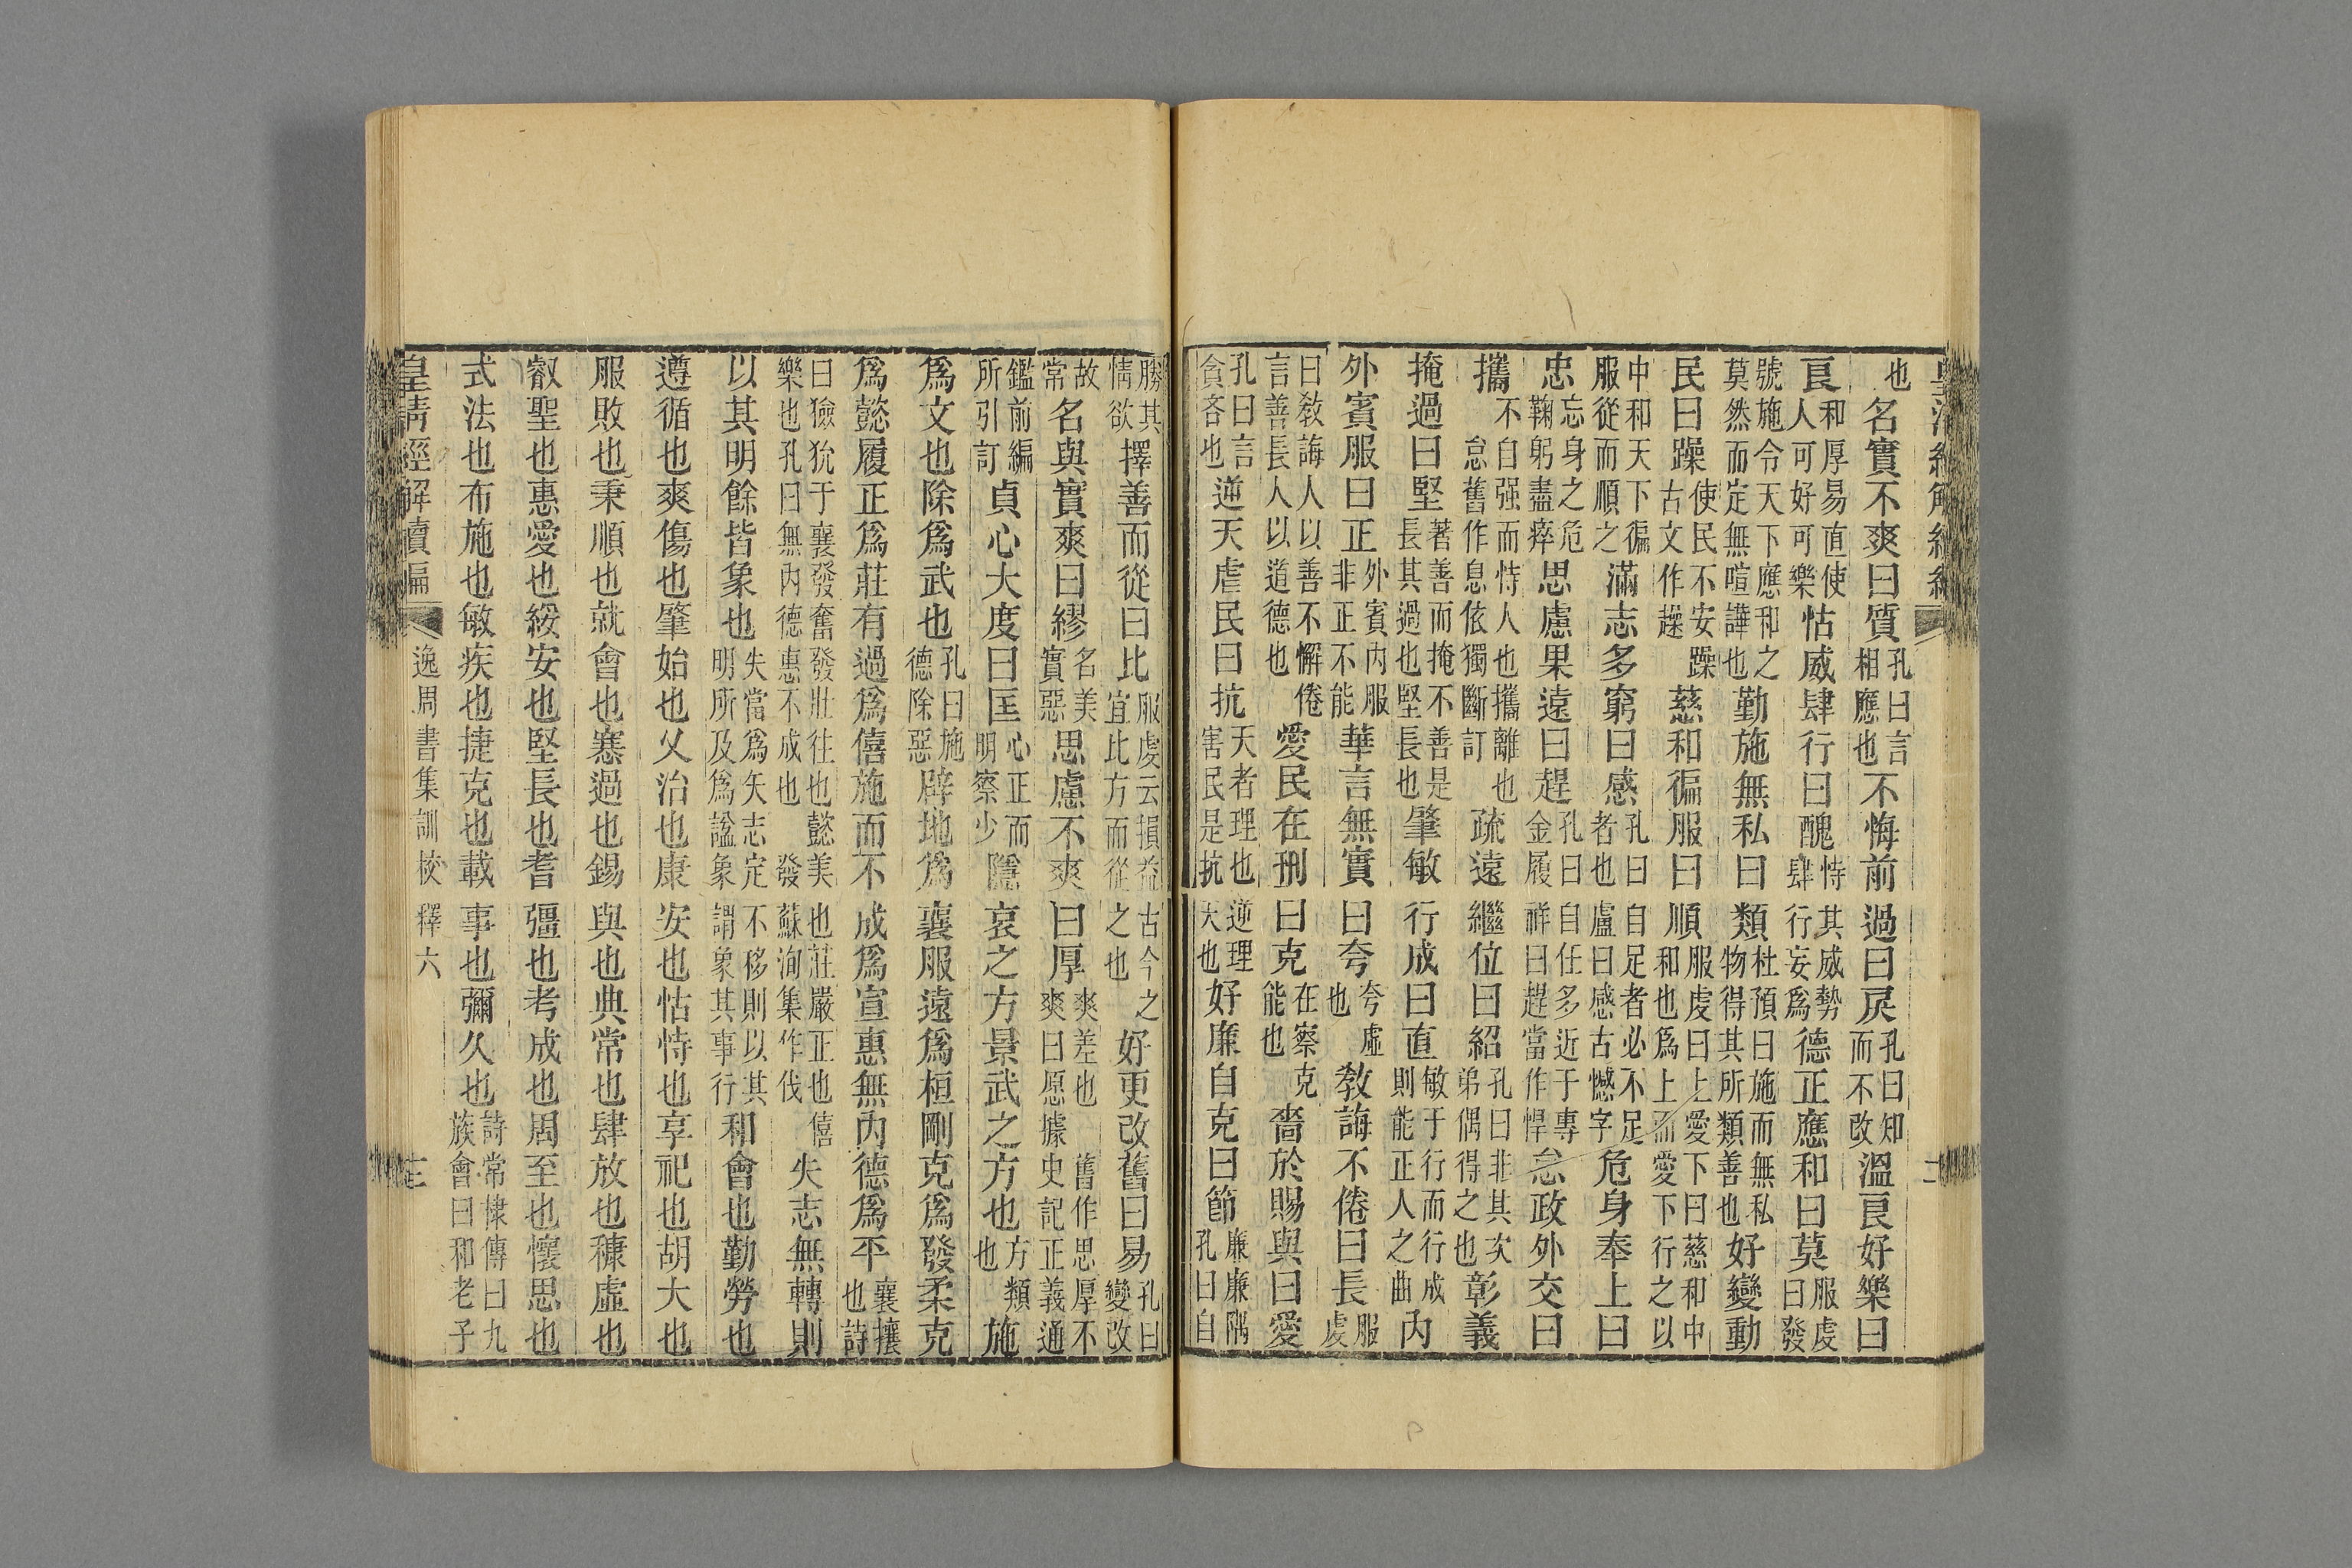 皇清經解續編
也名實不爽曰質孔曰言相應也不悔前過曰戾孔曰知而不改溫良好樂曰
良和厚易直使人可好可樂怙威肆行曰醜恃其威勢肆行妄爲德正應和曰莫服虔曰發
號施令天下應和之莫然而定無喧譁也勤施無私曰類杜預曰施而無私物得其所類善也好變動
民曰躁使民不安躁古文作趮慈和徧服曰順服虔曰上愛下曰慈和中和也爲上而愛下行之以
中和天下徧服從而順之滿志多窮曰感孔曰自足者必不足者也盧曰感古憾字危身奉上曰
忠忘身之危鞠躬盡瘁思慮果遠曰趕孔曰自任多近于專金履祥曰趕當作悍怠政外交曰
攜不自强而恃人也攜離也怠舊作息依獨斷訂疏遠繼位曰紹孔曰非其次弟偶得之也彰義
掩過曰堅著善而掩不善是長其過也堅長也肇敏行成曰直敏于行而行成則能正人之曲內
外賓服曰正外賓內服非正不能華言無實曰夸夸虛也教誨不倦曰長服虔
曰教誨人以善不懈倦言善長人以道德也愛民在刑曰克在察克能也嗇於賜與曰愛
孔曰言貪吝也逆天虐民曰抗天者理也逆理害民是抗大也好廉自克曰節廉廉隅孔曰自
勝其情欲擇善而從曰比服虔云損益古今之宜比方而從之也好更改舊曰易孔曰變改
故常名與實爽曰繆名美實惡思慮不爽曰厚爽差也舊作思厚不爽曰愿據史記正義通
鑑前編所引訂貞心大度曰匡心正而明察少隱哀之方景武之方也方類也施
爲文也除爲武也孔曰施德除惡辟地爲襄服遠爲桓剛克爲發柔克
爲懿履正爲莊有過爲僖施而不成爲宣惠無內德爲平襄攘也詩
曰獫狁于襄發奮發壯往也懿美也莊嚴正也僖樂也孔曰無內德惠不成也發蘇洵集作伐失志無轉則
以其明餘皆象也失當爲矢志定不移則以其明所及爲諡象謂象其事行和會也勤勞也
遵循也爽傷也肇始也乂治也康安也怙恃也享祀也胡大也
服敗也秉順也就會也寋過也錫與也典常也肆放也穅虛也
叡聖也惠愛也綏安也堅長也耆彊也考成也周至也懷思也
式法也布施也敏疾也捷克也載事也彌久也詩常棣傳曰九族會曰和老子
皇清經解續編 逸周書集訓校釋六